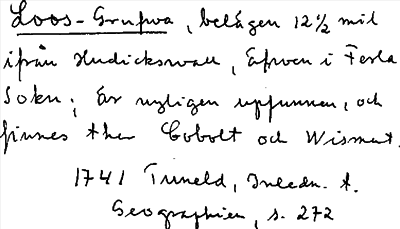 Loos-Grufwa, belägen 12½ mil
ifrån Hudickswall, Äfwen i Ferla
Sokn; är nyligen upfunnen, och
finnes ther Cobolt och Wismut.
1741 Tuneld, Inledn. t.
Geographien, s. 272